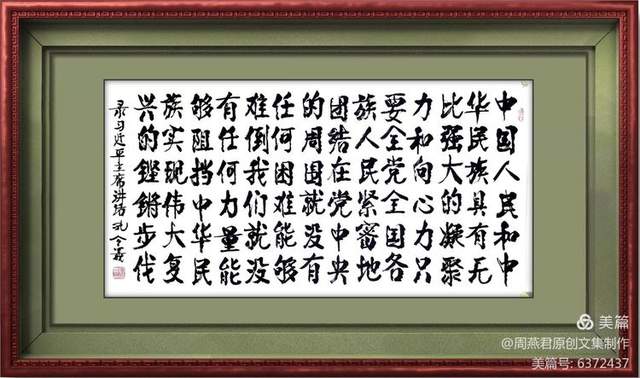 中国人民和中
华民族具有无
比强大的凝聚
力和向心力只
要全党全国各
族人民紧密地
团结在党中央
的周围就没有
任何困难能够
难倒我们就没
有任何力量能
够阻挡中华民
族实现伟大复
兴的铿锵步伐
录习近平主席讲话 孔令
美篇
@周燕君原创文集制作
美篇号: 6372437